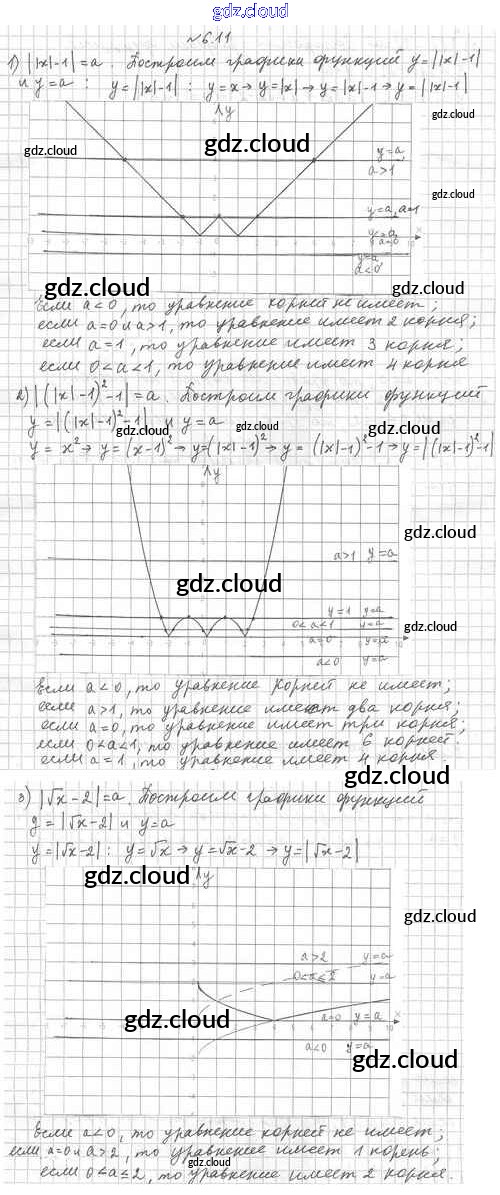 gdz.cloud
№6.11
1) ||x|-1|=a. Построим графики функций y=||x|-1|
и y=a: y=||x|-1|: y=x→y=|x|→y=|x|-1→y=||x|-1|
gdz.cloud
y
gdz.cloud
gdz.cloud
y=a,
a>1
gdz.cloud
y=a, a=1
y=a,
a=0
x
y=a,
a<0
gdz.cloud
gdz.cloud
Если a<0, то уравнение корней не имеет;
если a=0 и a>1, то уравнение имеет 2 корня;
если a=1, то уравнение имеет 3 корня;
если 0<a<1, то уравнение имеет 4 корня
2) |(|x|-1)²-1|=a. Построим графики функций
y=|(|x|-1)²-1| и y=a
gdz.cloud
gdz.cloud
gdz.cloud
y=x²→y=(x-1)²→y=(|x|-1)²→y=(|x|-1)²-1→y=|(|x|-1)²-1|
y
gdz.cloud
a>1 y=a
gdz.cloud
y=1 y=a
0<a<1 y=a
gdz.cloud
a=0 y=a
a<0 y=a
Если a<0, то уравнение корней не имеет;
если a>1, то уравнение имеет два корня;
если a=0, то уравнение имеет три корня;
если 0<a<1, то уравнение имеет 6 корней.
если a=1, то уравнение имеет 4 корня.
gdz.cloud
3) |√x-2|=a. Построим графики функций
y=|√x-2| и y=a
y=|√x-2|: y=√x→y=√x-2→y=|√x-2|
gdz.cloud
y
gdz.cloud
a>2 y=a
0<a≤2 y=a
gdz.cloud
a=0 y=a x
a<0 y=a
gdz.cloud
Если a<0, то уравнение корней не имеет;
если a=0 и a>2, то уравнение имеет 1 корень;
gdz.cloud
если 0<a≤2, то уравнение имеет 2 корня.